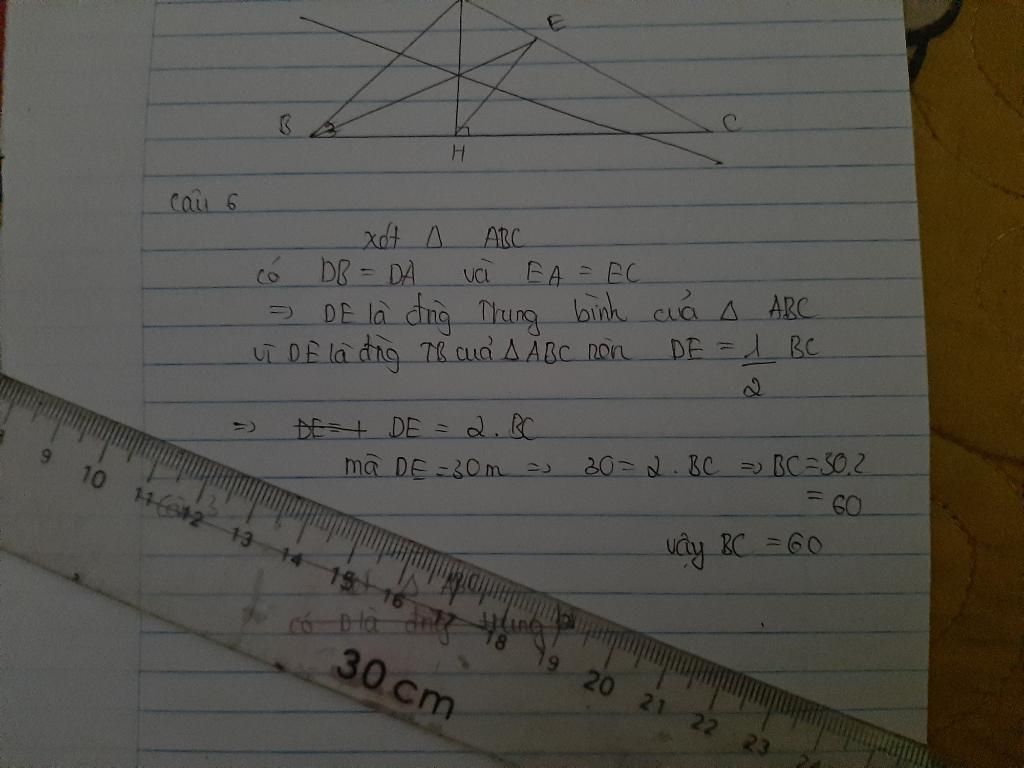 E
B
C
H
Câu 6
xét Δ ABC
có DB = DA và EA = EC
=> DE là đng Trung bình cuả Δ ABC
vì DE là đng TB cuả Δ ABC nên DE = 1/2 BC
=> DE = 1 DE = 2. BC
mà DE = 30m => 30 = 2. BC => BC = 30.2
= 60
vậy BC = 60
9 10 11 12 13 14 15 16 17 18 19 20 21 22 23 24
có D là đng trung
30 cm